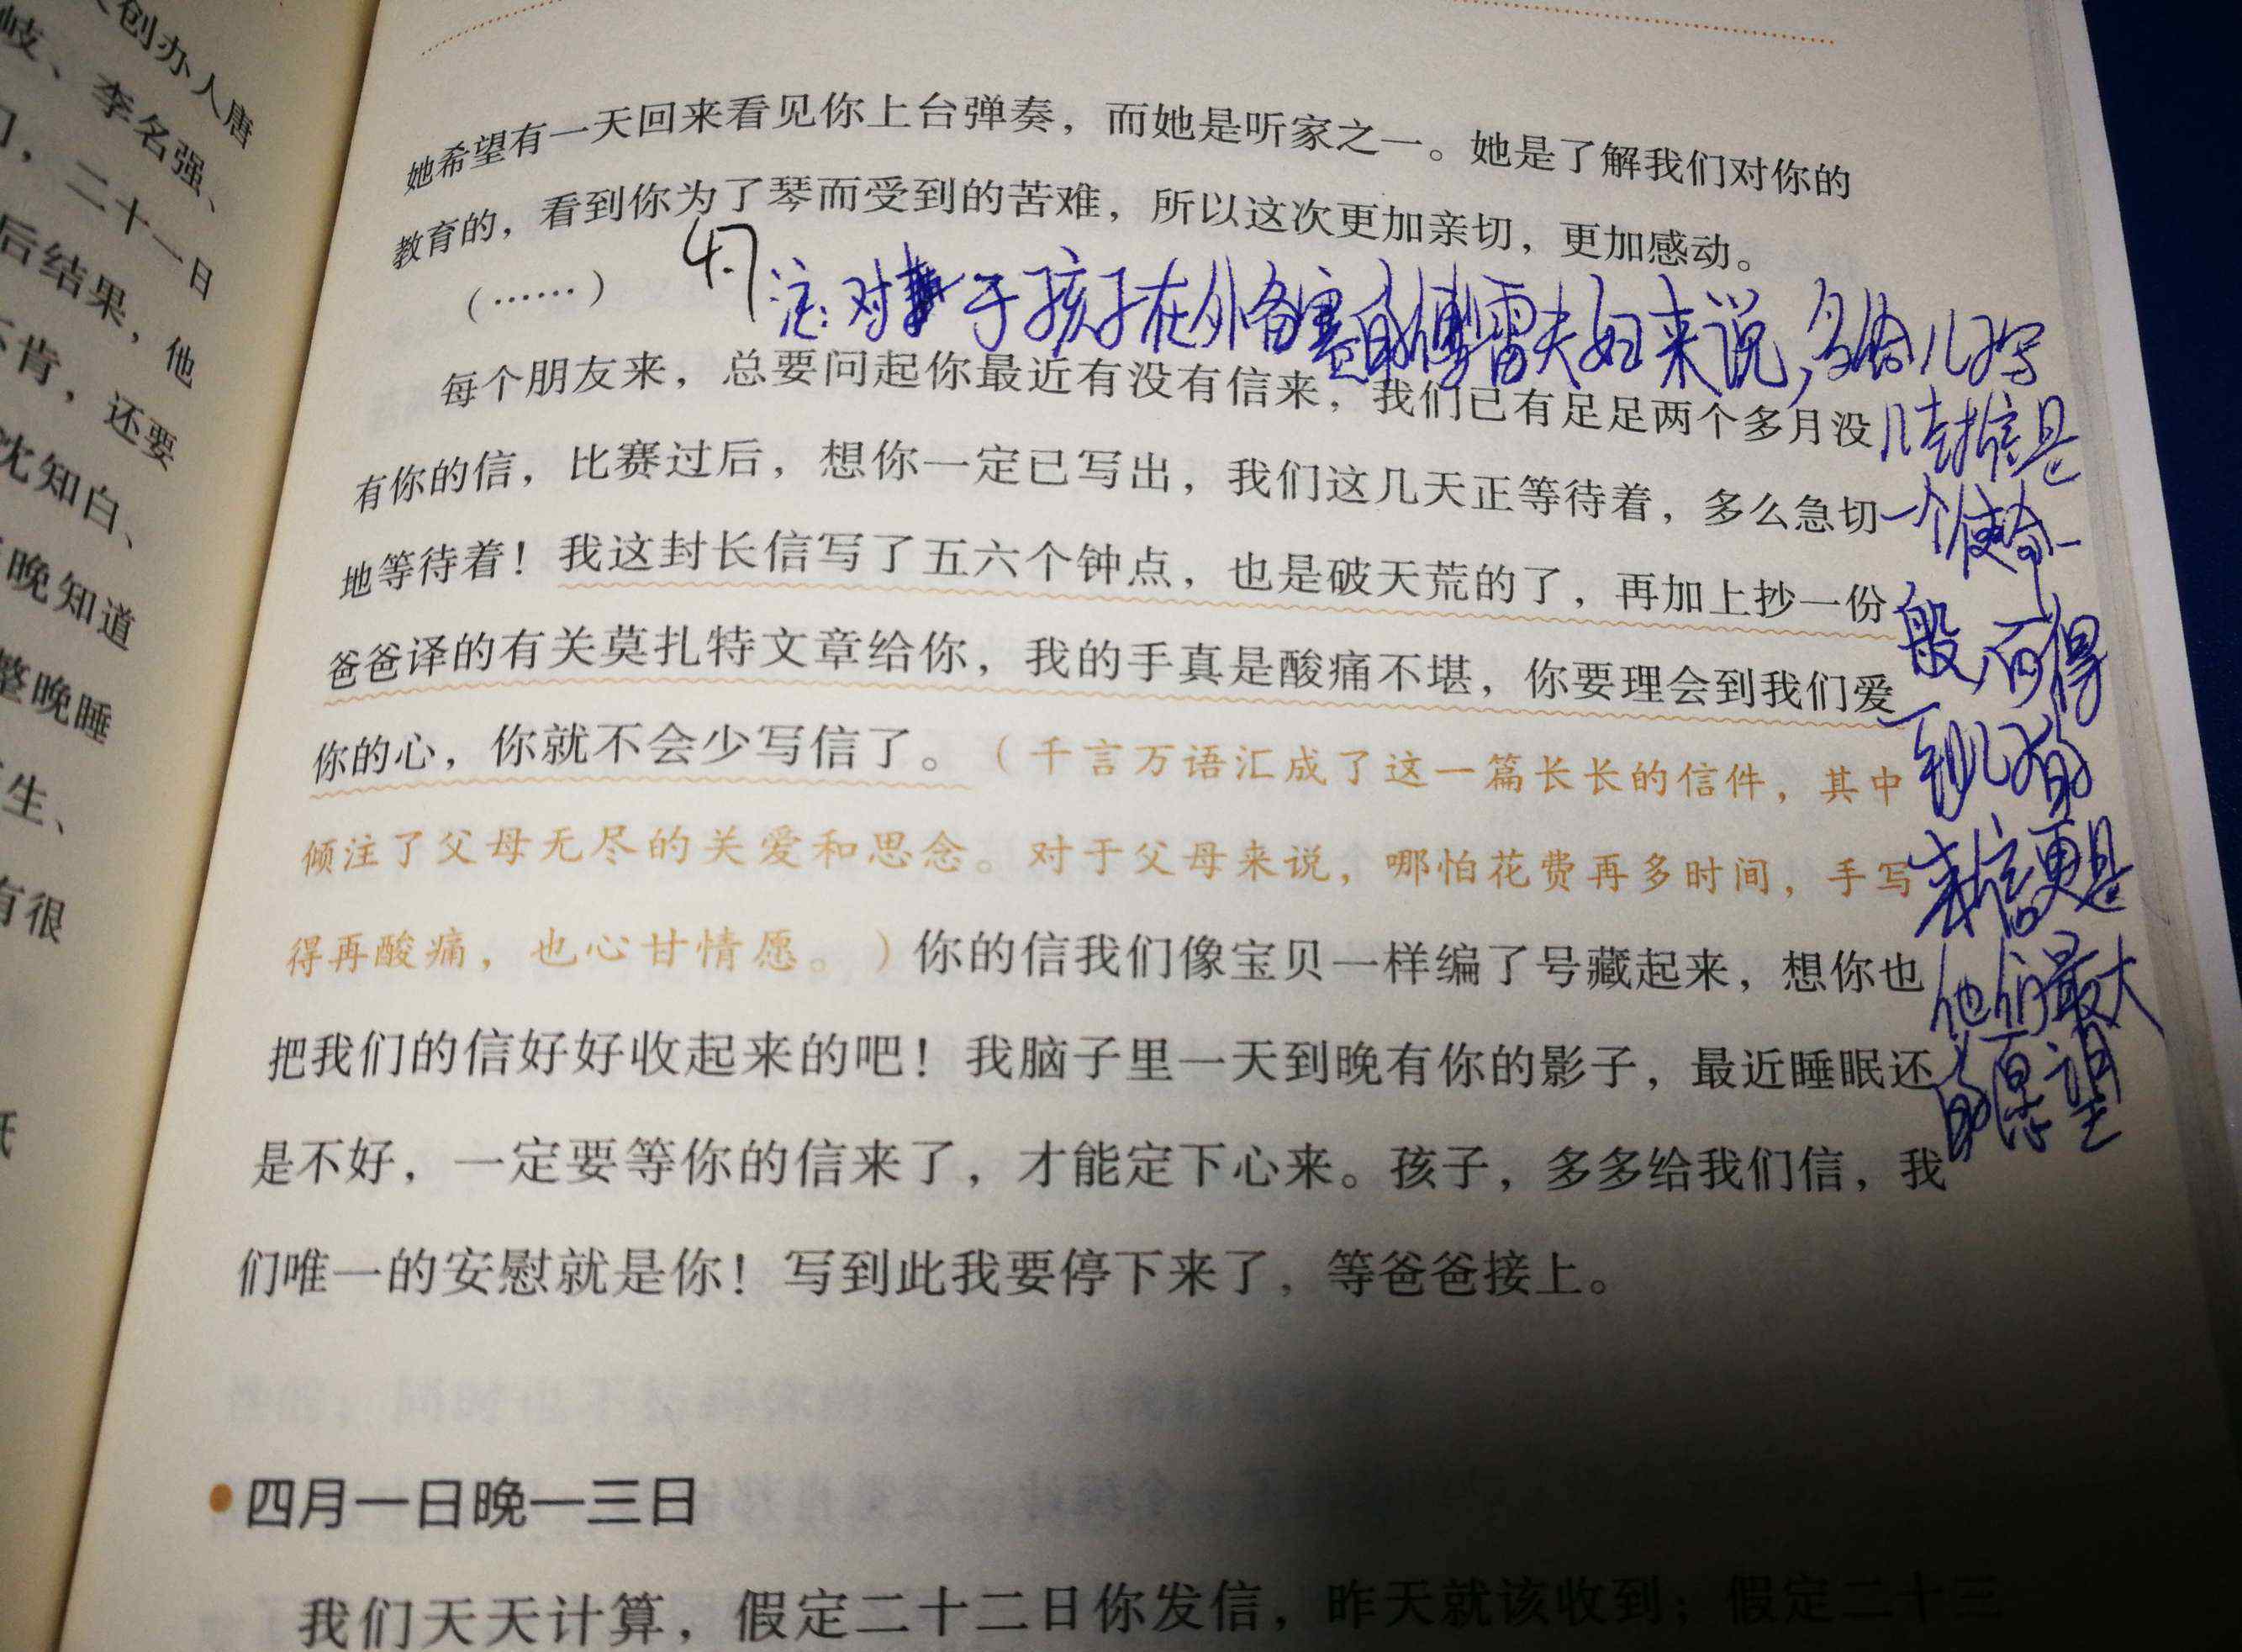 创办人唐
岐、李名强、
二十一日
后结果，他
肯，还要
沈知白、
晚知道
整晚睡
生、
有很
她希望有一天回来看见你上台弹奏，而她是听家之一。她是了解我们对你的
教育的，看到你为了琴而受到的苦难，所以这次更加亲切，更加感动。
（……）
4.7
注：对于孩子在外备赛的傅雷夫妇来说，多给儿子写
每个朋友来，总要问起你最近有没有信来，我们已有足足两个多月没
几封信是
有你的信，比赛过后，想你一定已写出，我们这几天正等待着，多么急切
一个使命一
地等待着！我这封长信写了五六个钟点，也是破天荒的了，再加上抄一份
般，而得
爸爸译的有关莫扎特文章给你，我的手真是酸痛不堪，你要理会到我们爱
到儿子的
你的心，你就不会少写信了。（千言万语汇成了这一篇长长的信件，其中
来信更是
倾注了父母无尽的关爱和思念。对于父母来说，哪怕花费再多时间，手写
他们最大
得再酸痛，也心甘情愿。）你的信我们像宝贝一样编了号藏起来，想你也
的
把我们的信好好收起来的吧！我脑子里一天到晚有你的影子，最近睡眠还
是不好，一定要等你的信来了，才能定下心来。孩子，多多给我们信，我
们唯一的安慰就是你！写到此我要停下来了，等爸爸接上。
四月一日晚—三日
我们天天计算，假定二十二日你发信，昨天就该收到；假定二十三